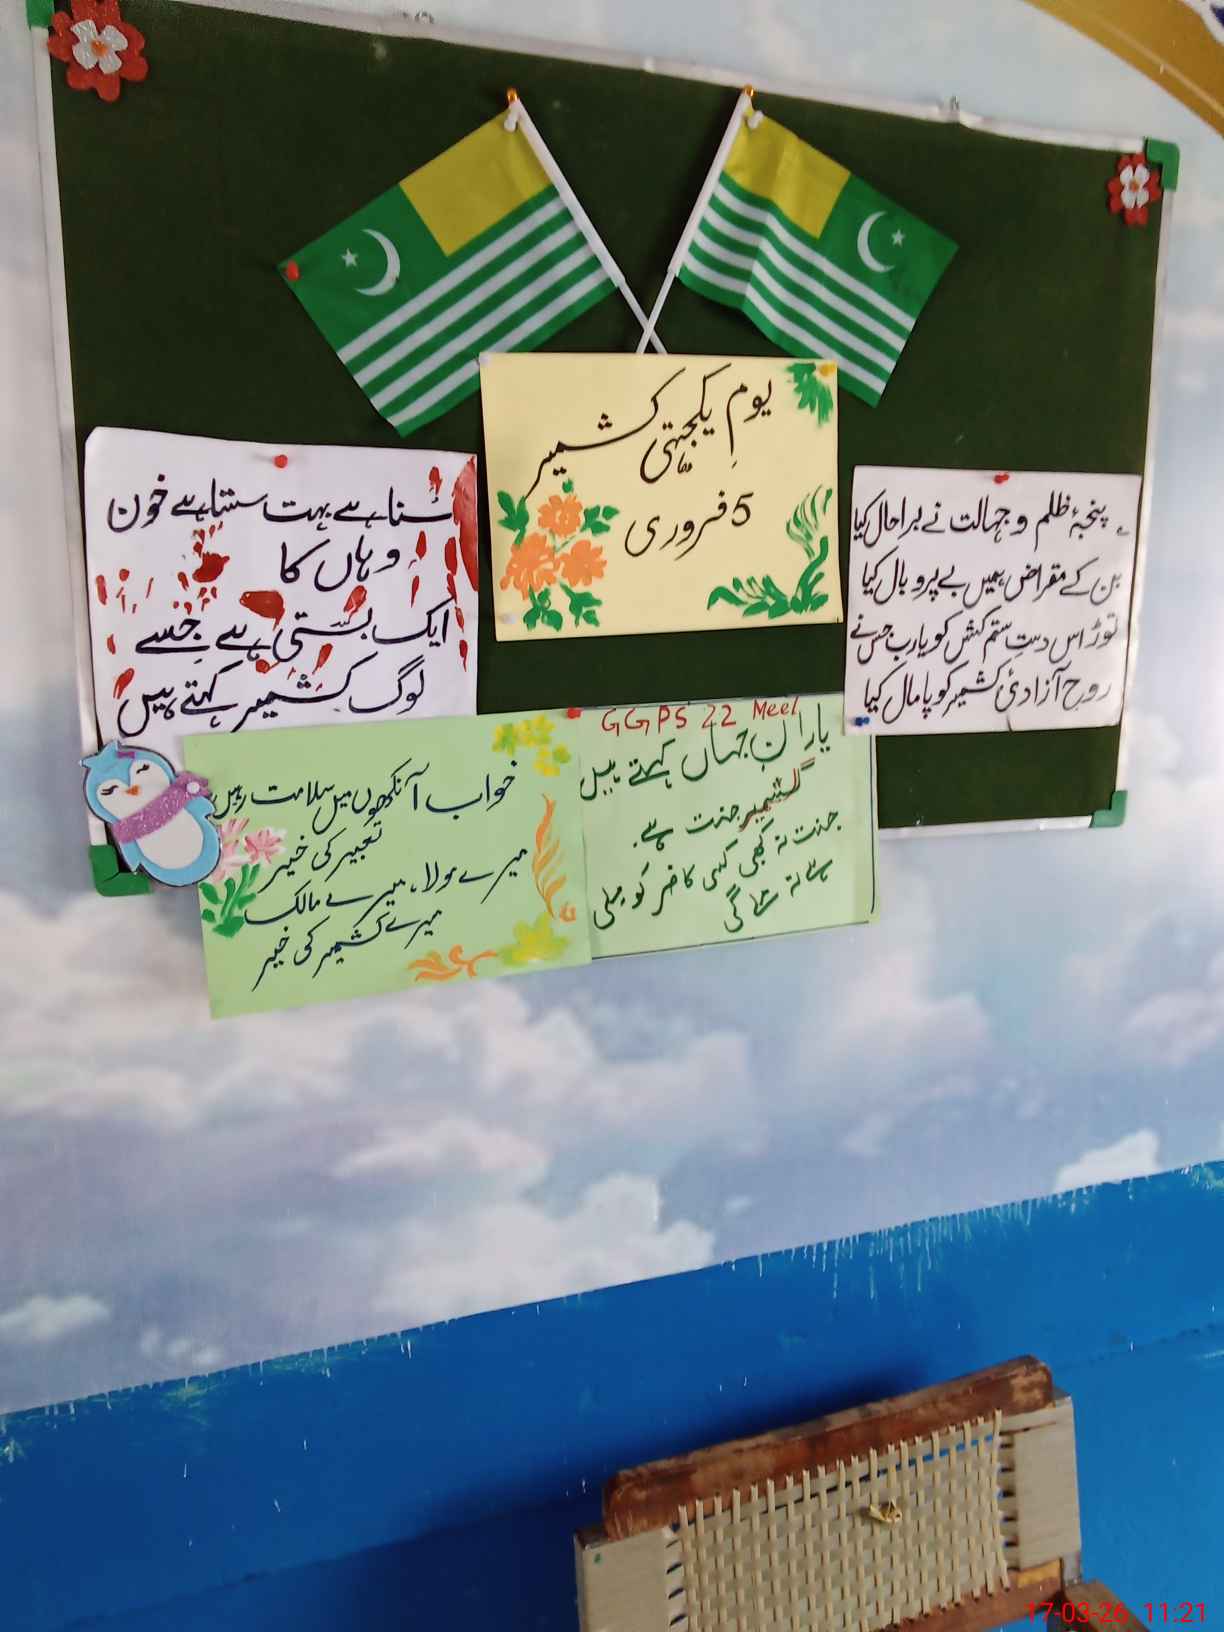 یومِ یکجہتی کشمیر
5 فروری
سُنا ہے بہت سستا ہے خون
وہاں کا
ایک بستی ہے جِسے
لوگ کشمیر کہتے ہیں
پنجۂ ظلم و جہالت نے برا حال کیا
بن کے مقراض ہمیں بے پر و بال کیا
توڑ اس دستِ ستم کش کو یا رب جس نے
روحِ آزادیٔ کشمیر کو پامال کیا
خواب آنکھوں میں سلامت رہیں
تعبیر کی خیر
میرے مولا، میرے مالک
میرے کشمیر کی خیر
GGPS 22 Meel
یاران جہاں کہتے ہیں
کشمیر جنت ہے۔
جنت نہ کبھی کسی کافر کو ملی
ہے نہ ملے گی
17-03-26 11:21